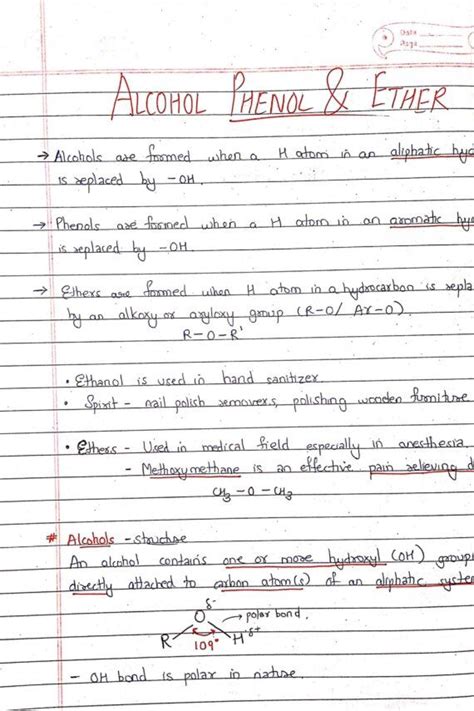 Date
Page
ALCOHOL PHENOL & ETHER
→ Alcohols are formed when a H atom in an aliphatic hyd
is replaced by -OH.
→ Phenols are formed when a H atom in an aromatic hy
is replaced by -OH.
→ Ethers are formed when H atom in a hydrocarbon is repla
by an alkoxy or aryloxy group (R-O/ Ar-O).
R-O-R'
• Ethanol is used in hand sanitizer.
• Spirit - nail polish removers, polishing wooden furniture
• Ethers - Used in medical field especially in anesthesia.
- Methoxymethane is an effective pain relieving d
CH₃-O-CH₃
# Alcohols - structure
An alcohol contains one or more hydroxyl (OH) group
directly attached to carbon atom(s) of an aliphatic system
δ-
O → polar bond.
R 109° H δ+
- OH bond is polar in nature.